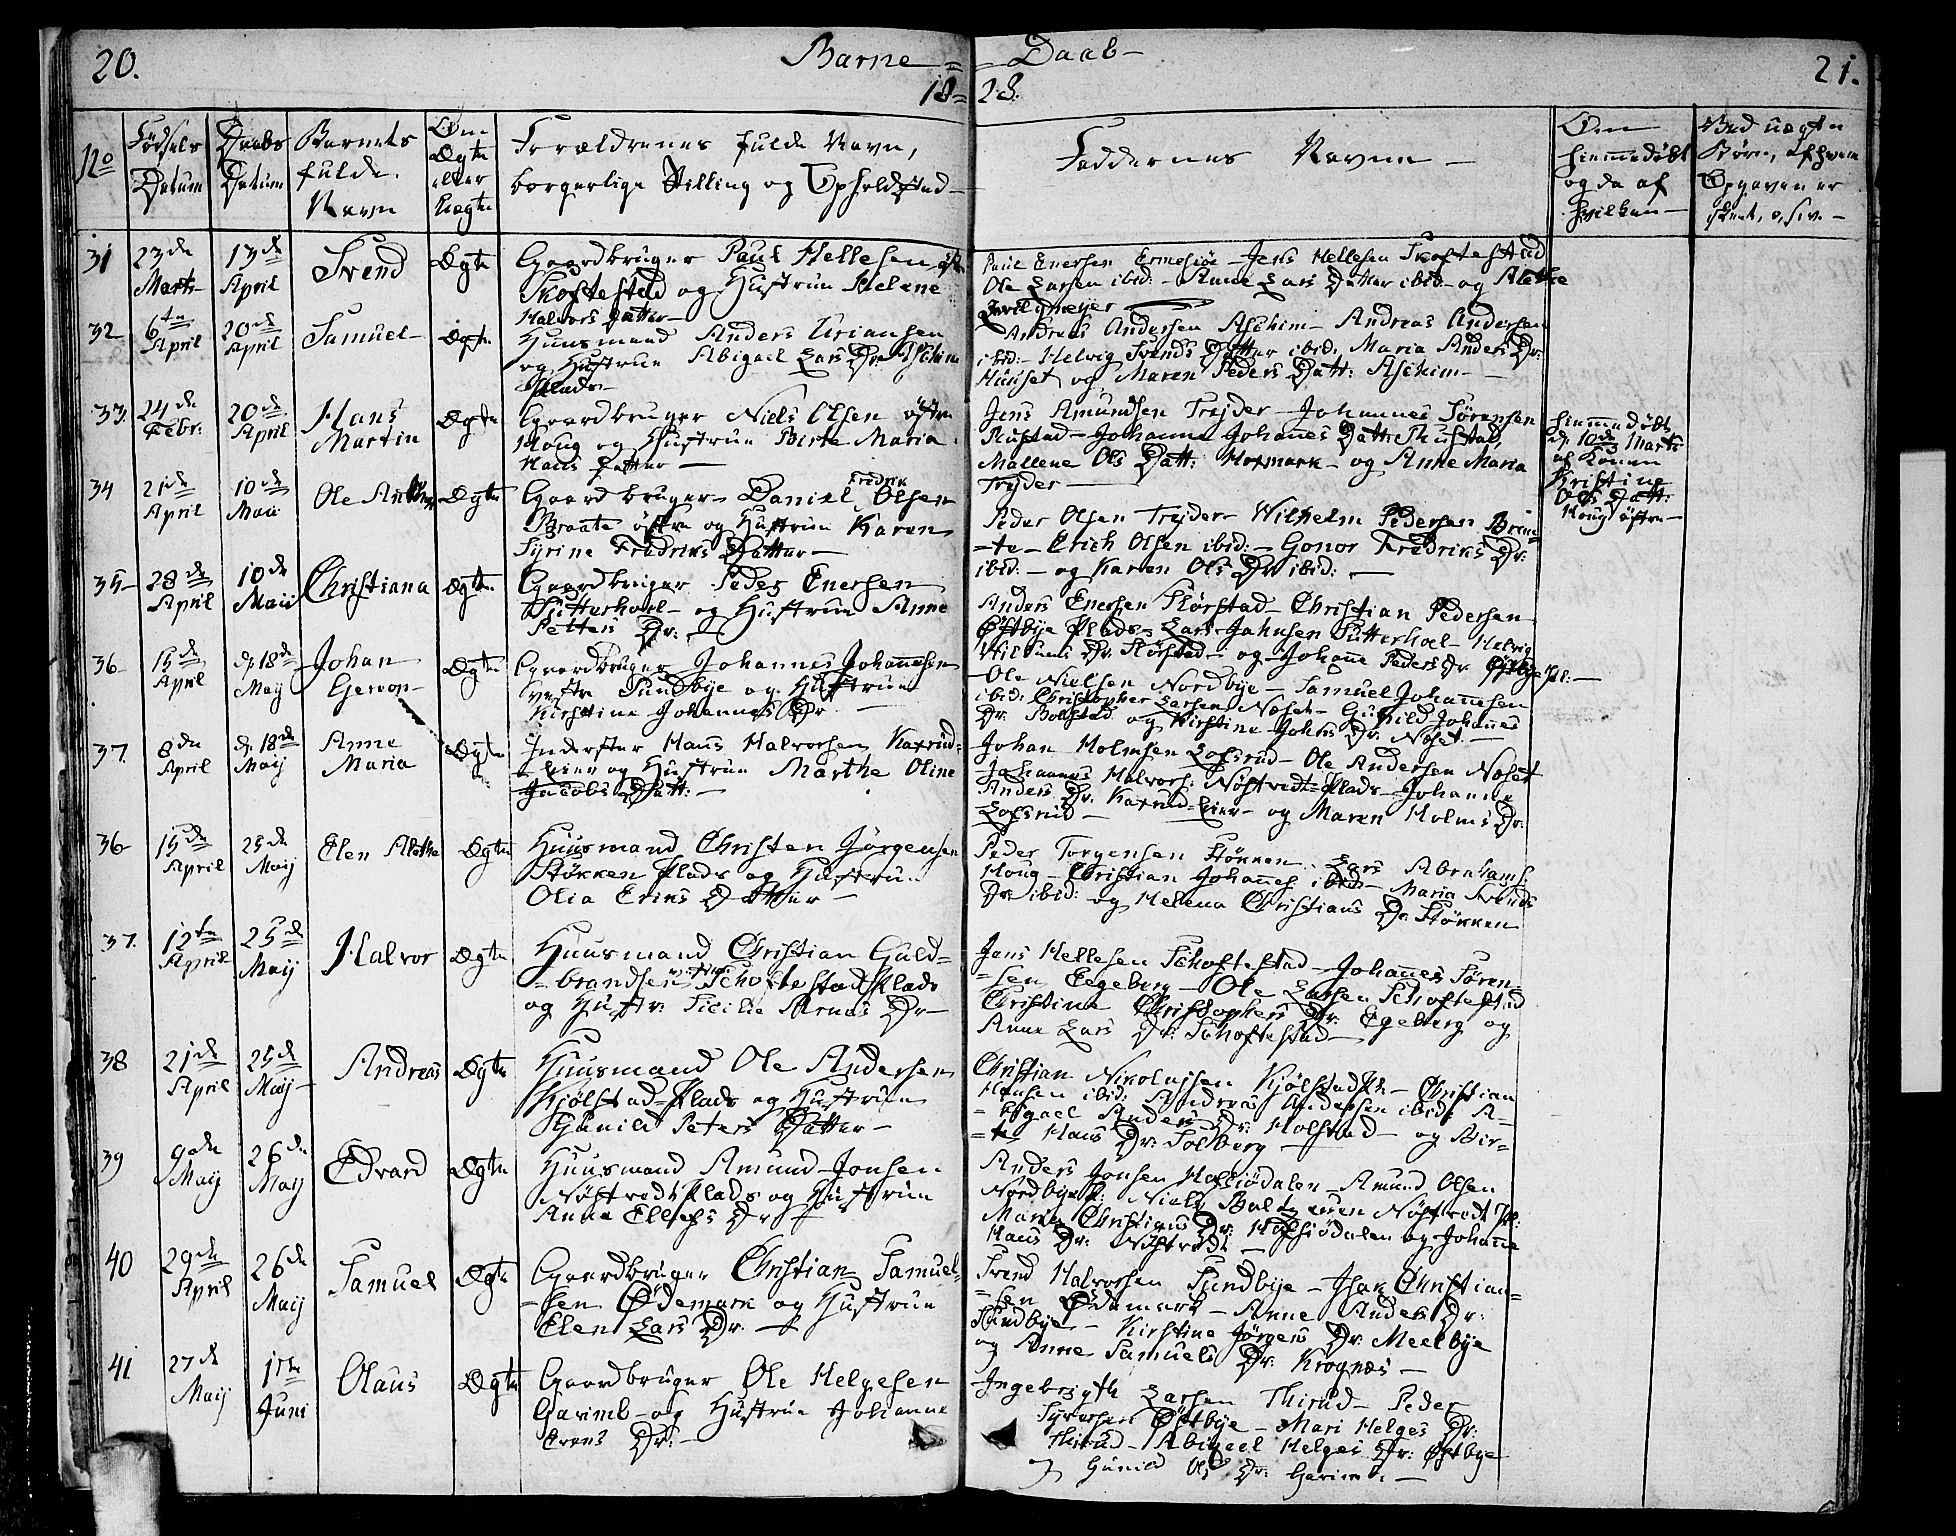 20. Barne = = Daab - 21.
18 = 28.
No
Fødsels Datum
Daabs Datum
Barnets fulde Navn
Om Ægte eller Uægte
Forældrenes fulde Navn,
borgerlige Stilling og Opholdsted -
Faddernes Navne -
Om hiemmedøbt og da af hvilken -
Ved uægte Børn, af hvem Opgaven er skeet, o, s, v. -
31 23de Marts 13de April Svend Ægte
Gaardbruger Paul Hellesen
Skoftestad og Hustrue Helene
Halvors Datter -
Paul Enersen Ermesiøe - Jens Hellesen Skoftestad
Ole Larsen ibid: - Anne Lars Datter ibid - og Alethe
32 6te April 20de April Samuel - Ægte
Huusmand Anders Uriansen
og Hustrue Abigael Lars Dr. Aschim
Plads -
Andreas Andersen Aschim - Andreas Andersen
ibid: - Helvig Svends Datter ibid. Maria Anders Dr:
Huuset og Maren Peders Datt: Aschim -
33. 24de Febr: 20de April Hans Martin Ægte
Gaardbruger Niels Olsen østre
Houg og Hustrue Birte Maria
Hans Datter -
Jens Amundsen Trejder - Johannes Sørensen
Rustad - Johanne Johanes Datt: Rustad,
Mallene Ols Datt: Hoxmark - og Anne Maria
Trejder -
hiemmedøbt
d. 10de Marts
af Konen
Kristine
Ols Datt:
Houg østre -
34 21de April 10de Maii Ole Anton Ægte
Gaardbruger Daniel Fredrik Olsen
Braate østre og Hustrue Karen
Syrine Fredriks Datter -
Peder Olsen Trejder - Wilhelm Pedersen Braa=
=te - Erich Olsen ibid: - Gonor Fredriks Dr:
ibid: - og Karen Ols Dr ibid: -
35 - 28de April 10de Maij Christiana Ægte
Gaardbruger Peder Enersen
Sutterhoel - og Hustrue Anne
Petters Dr: -
Anders Enersen Størstad - Christian Pedersen
Østbye Plads - Lars Jahnsen Sutterhoel - Helvig
Nilsens Dr. Størstad - og Johane Peders Dr Østbye Pl: -
36 - 15de April d. 18de Maij Johan Gerson - Ægte
Gaardbruger Johannes Johannesen
vestre Sundbye og Hustrue
Kirstine Johannes Dr -
Ole Nielsen Nordbye - Samuel Johannesen
ibid: Christopher Larsen Noset - Gunild Johanes
Dr. Bolstad og Kirstine Johns Dr. Noset. -
37. 8de April d. 18de Maij Anne Maria Ægte
Inderster Hans Halvorsen Kaxrud=
Eier og Hustrue Marthe Oline
Jacobs Datt: -
Johan Holmsen Lofsrud - Ole Andersen Noset
Johannes Halvors: Nøstvedt=Plads - Johanne
Anders Dr. Kaxrud=Eier - og Maren Holms Dr:
Lofsrud -
36 - 15de April 25de Maij Elen Alethe Ægte
Huusmand Christen Jørgensen
Støkken Plads og Hustrue
Olia Eriks Datter -
Peder Torgensen Støkken. Lars Abrahams:
Houg - Christian Johannes ibid - Maria Svends
Dr. ibid: og Helena Christians Dr. Støkken
37. 12te April 25de Maij Halvor Ægte
Huusmand Christian Guld=
=brandsen Schoftestad Plads
og Hustr: Sicilie Arnes Dr -
Jens Hellesen Schoftestad - Johanes Søren=
=sen Eegeberg - Ole Larsen Schoftestad
Christine Christophers Dr. Egeberg og
Anne Lars Dr. Schoftestad -
38 21de April 25de Maij - Andreas Ægte
Huusmand Ole Andersen
Kjølstad=Plads og Hustrue
Gunild Peters Datter -
Christian Nikolajsen Kjølstad Pl: - Christian
Hansen ibid: Andreas Andersen ibid: A=
=bigael Anders Dr. Holstad - og Bir=
=te Hans Dr: Solberg -
39 9de Maij 26de Maij Edvard Ægte
Huusmand Amund Jonsen
Nøstvedt Plads og Hustrue
Anne Ellefs Dr -
Anders Jonsen Hofsiødalen - Amund Olsen
Nordbye Pl: Niels Baltzersen Nøstvedt Pl:
Maria Christians Dr: Hofsiødalen og Johanne
Hans Dr. Nøstvedt -
40 29de April 26de Maij Samuel Ægte
Gaardbruger Christian Samuel=
=sen Ødemark og Hustrue
Elen Lars Dr. -
Svend Halvorsen Sundbye - Isak Christian=
=sen Ødemark - Anne Anders Dr:
Sundbye - Kirstine Jørgens Dr. Meelbye
og Anne Samuels Dr. Krognæs -
41 27de Maij 1ste Juni Olaus Ægte
Gaardbruger Ole Helgesen
Garimb - og Hustrue Johanne
Evens Dr: -
Ingebrigth Larsen Thirud - Peder
Syversen Østbye - Mari Helges Dr:
Thirud - Abigael Helges Dr: Østbye
og Gunild Ols Dr: Garimb. -